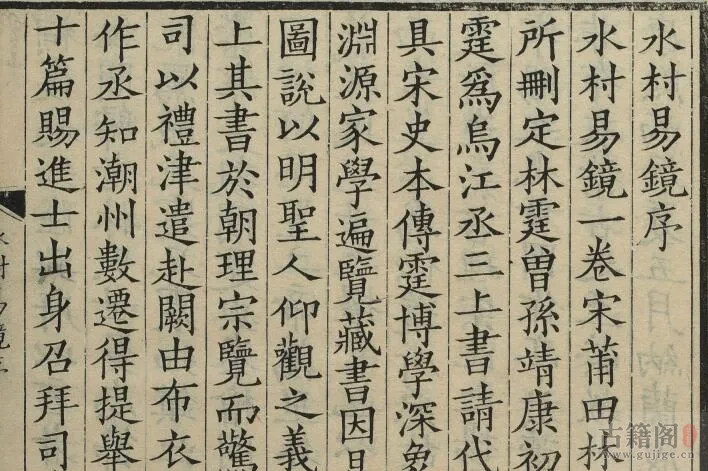 水村易鏡序
水村易鏡一卷宋莆田林
所刪定林霆曾孫靖康初
霆為烏江丞三上書請代
具宋史本傳霆博學深象
淵源家學遍覽藏書因
圖說以明聖人仰觀之義
上其書於朝理宗覽而驚
司以禮津遣赴闕由布衣
作丞知潮州數遷得提舉
十篇賜進士出身召拜司
古籍阁
www.gujige.com